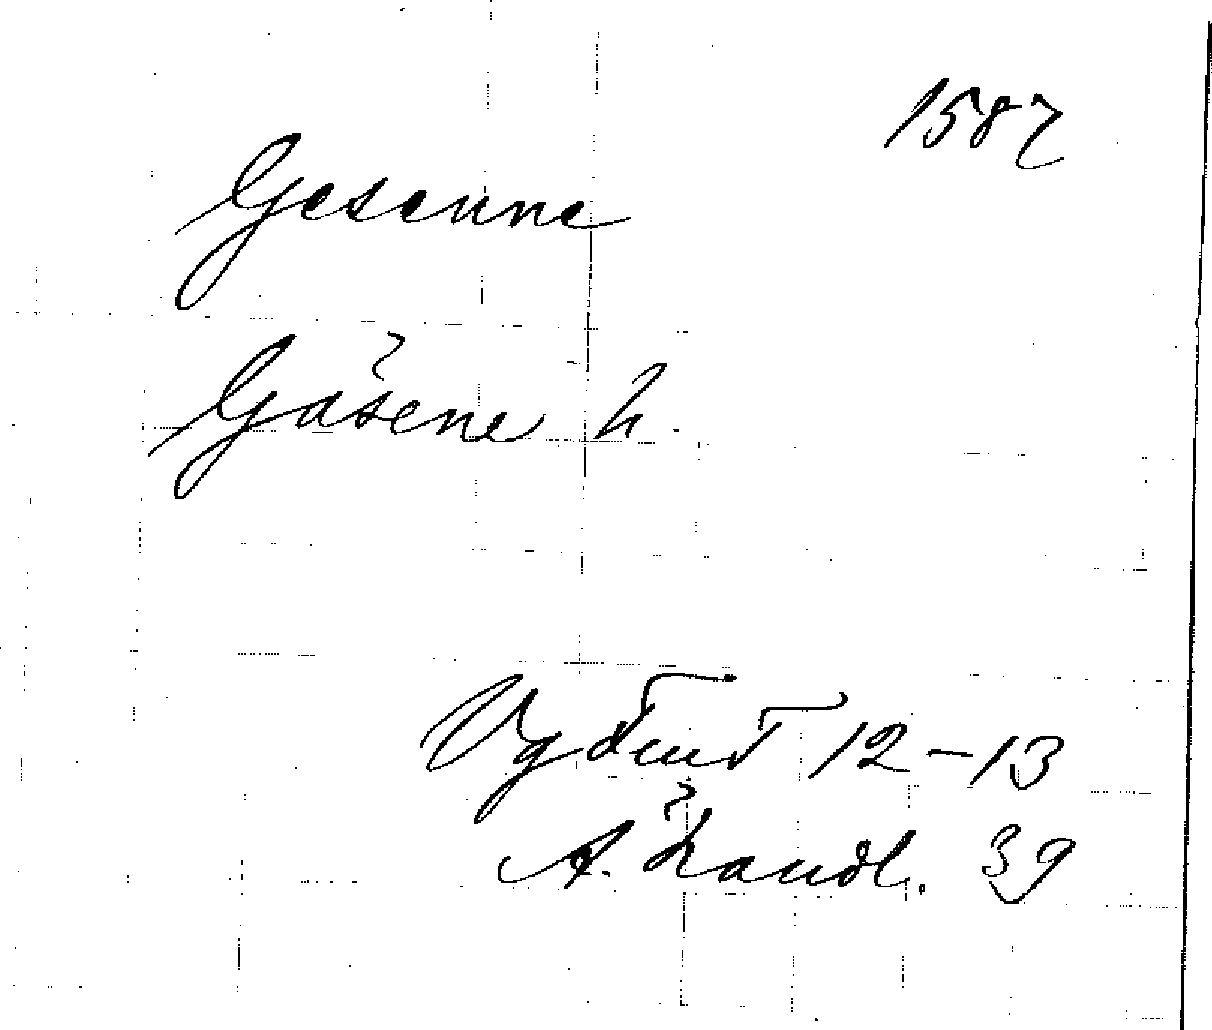 1587
Gesenne
Gåsene h.
12-13
A. handl. 39